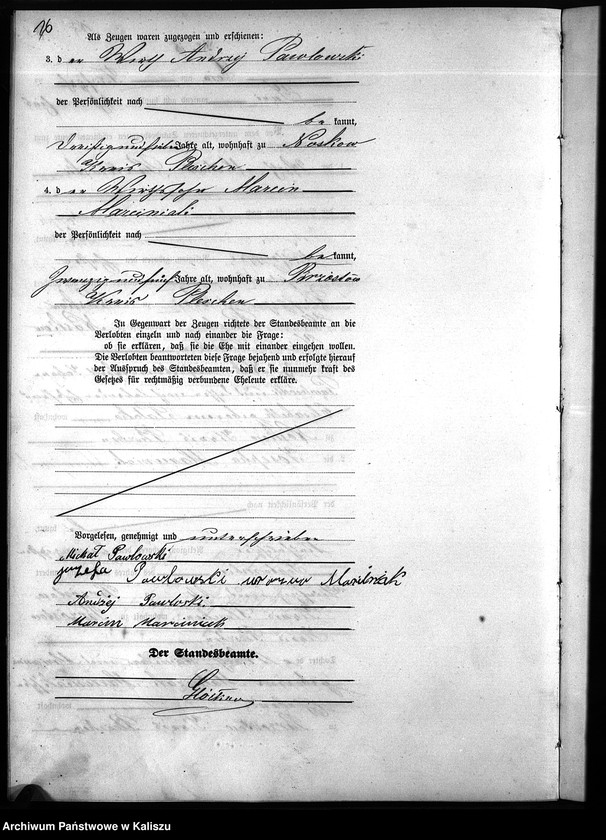 76
Als Zeugen waren zugezogen und erschienen:
3. d er Wirth Andrzej Pawlowski
der Persönlichkeit nach
be kannt,
Jahre alt, wohnhaft zu Noskow
Kreis Pleschen
4. d er Wirthssohn Marcin
Marciniak
der Persönlichkeit nach
be kannt,
Zwanzig und fünf Jahre alt, wohnhaft zu Brzostow
Kreis Pleschen
In Gegenwart der Zeugen richtete der Standesbeamte an die
Verlobten einzeln und nach einander die Frage:
ob sie erklären, daß sie die Ehe mit einander eingehen wollen.
Die Verlobten beantworteten diese Frage bejahend und erfolgte hierauf
der Ausspruch des Standesbeamten, daß er sie nunmehr kraft des
Gesetzes für rechtmäßig verbundene Eheleute erkläre.
Vorgelesen, genehmigt und unterschrieben
Michał Pawlowski
Jozefa Pawlowski
Andrzéj
Marcin Marciniak
Der Standesbeamte.
Archiwum Państwowe w Kaliszu